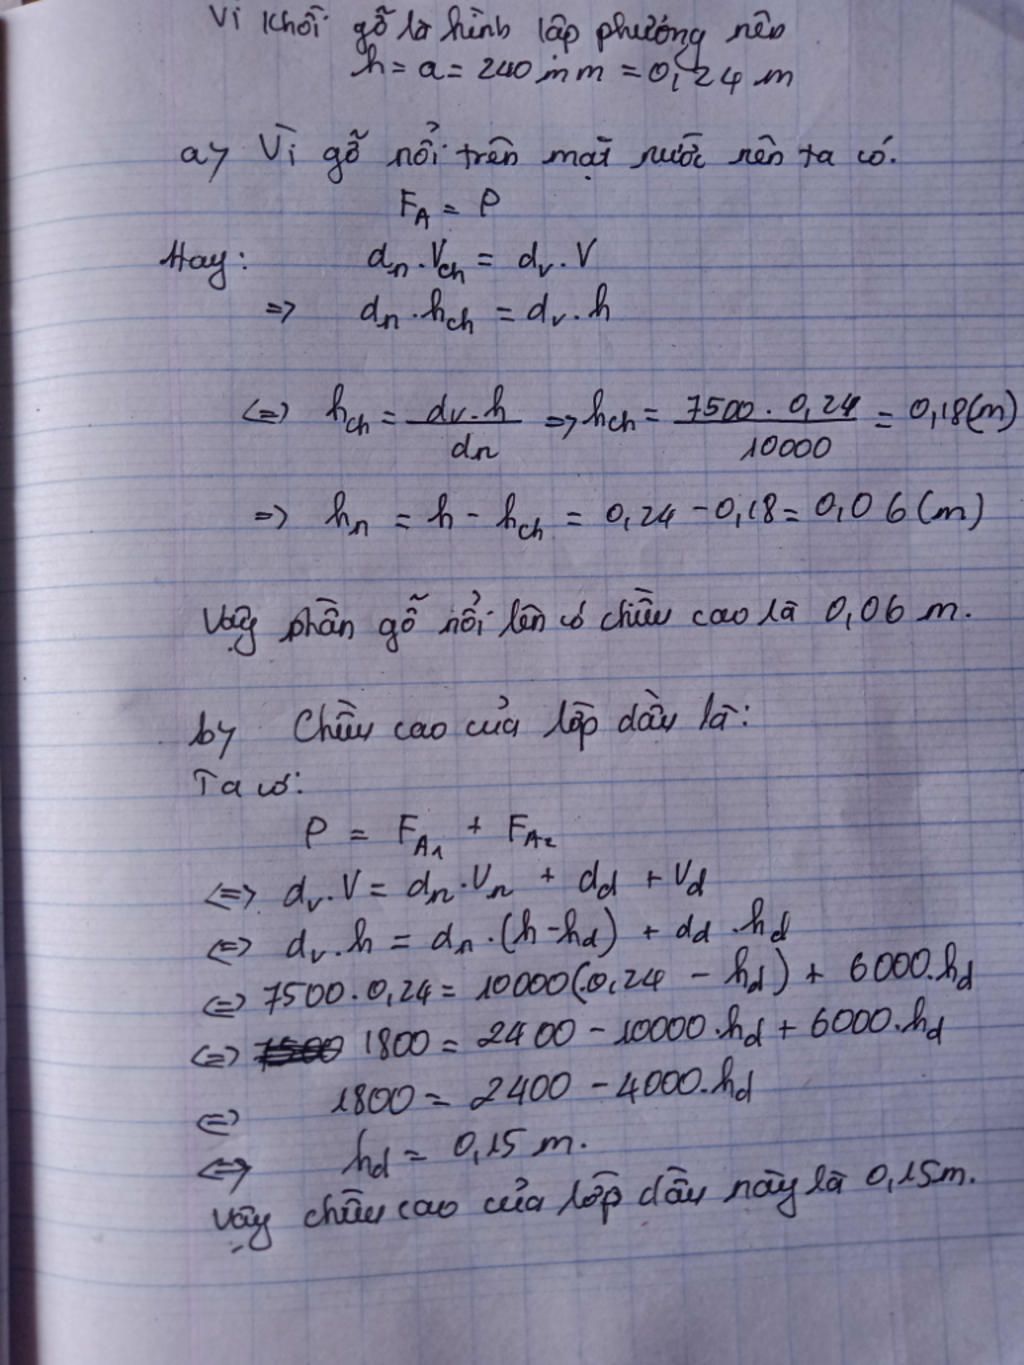 Vì khối gỗ là hình lập phương nên
h = a = 240 mm = 0,24 m
a) Vì gỗ nổi trên mặt nước nên ta có.
F_A = P
Hay: d_n . V_ch = d_v . V
=> d_n . h_ch = d_v . h
<=> h_ch = \frac{d_v . h}{d_n} => h_ch = \frac{7500 . 0,24}{10000} = 0,18(m)
=> h_n = h - h_ch = 0,24 - 0,18 = 0,06 (m)
Vậy phần gỗ nổi lên có chiều cao là 0,06 m.
b) Chiều cao của lớp dầu là:
Ta có:
P = F_A1 + F_A2
<=> d_v . V = d_n . V_n + d_d + V_d
<=> d_v . h = d_n . (h - h_d) + d_d . h_d
<=> 7500 . 0,24 = 10000(0,24 - h_d) + 6000.h_d
<=> 1800 = 2400 - 10000.h_d + 6000.h_d
<=> 1800 = 2400 - 4000.h_d
<=> h_d = 0,15 m.
Vậy chiều cao của lớp dầu này là 0,15m.